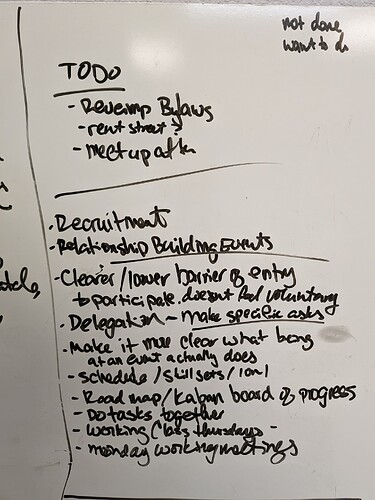 not done,
want to do
TODO
- Revamp Bylaws
- rent street?
- meet up after
- Recruitment
- Relationship Building Events
- Clearer/lower barrier of entry
to participate. doesn't feel voluntary
- Delegation - make specific asks
- Make it more clear what being
at an event actually does
- schedule/skill sets/1 on 1
- Road map/Kaban board of progress
- Do tasks together
- working Class thursdays -
- monday working meetings